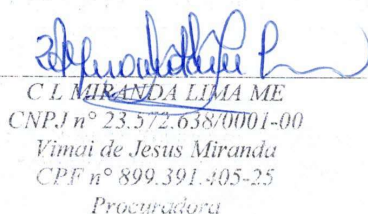 C L MIRANDA LIMA ME
CNPJ nº 23.572.638/0001-00
Vimai de Jesus Miranda
CPF nº 899.391.405-25
Procuradora